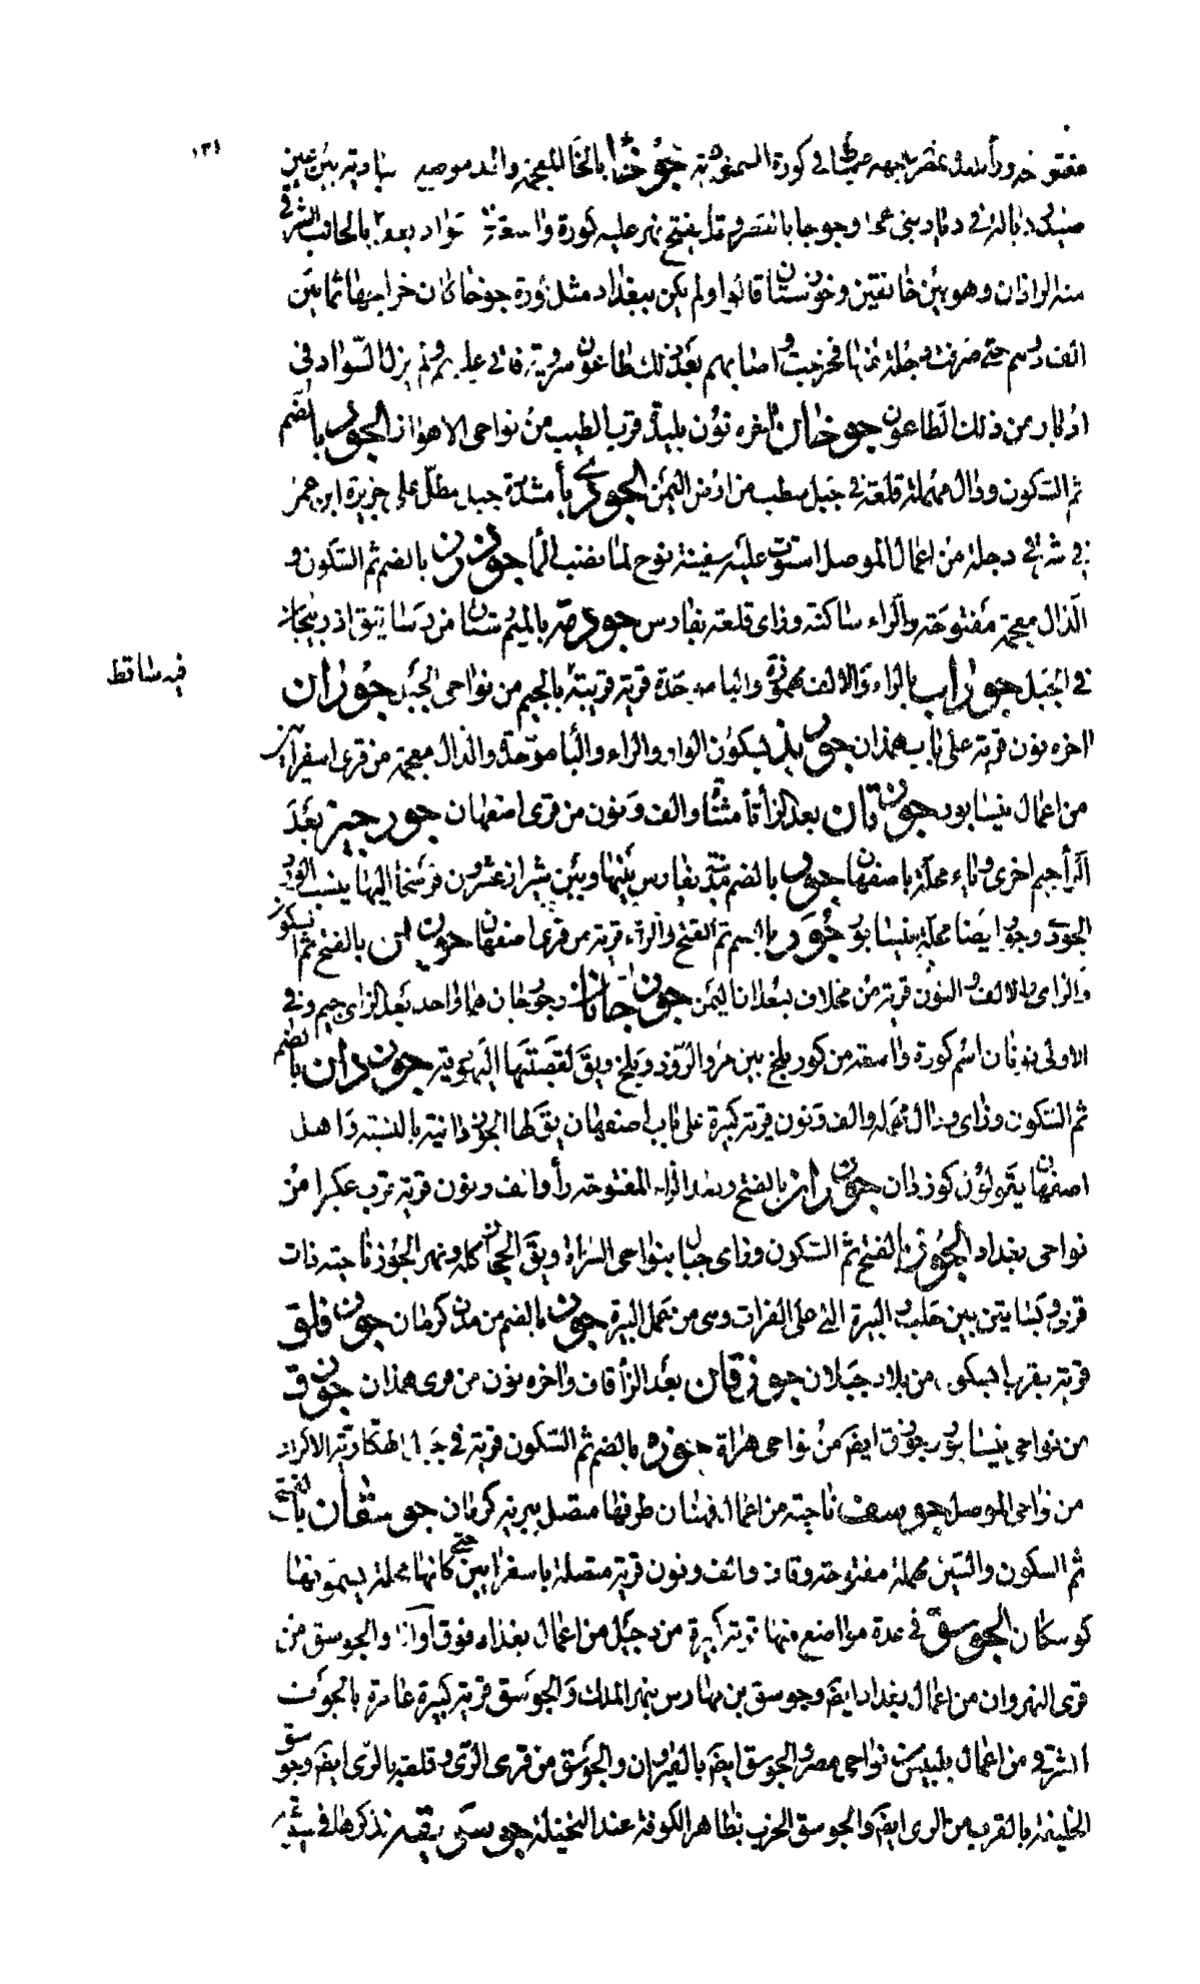 ١٣٤
مفتوحة وراء بلد بمصر من جهة دمياط في كورة السمنودية جوخا بالخاء المعجمة والمد موضع بالبادية بين عين
صيد وزبالة في ديار بني عجل وجوخا بالقصر وقد يفتح نهر عليه كورة واسعة في سواد بغداد بالجانب الشرقي
منه الراذان وهو بين خانقين وخوزستان قالوا ولم يكن ببغداد مثل كورة جوخا كان خراجها ثمانين
الف درهم حتى صرفت دجلة عنها فخربت واصابهم بعد ذلك طاعون شيرويه فاتى عليهم ولم يزل السواد في
ادبار من ذلك الطاعون جوخان اخره نون بليد قرب الطيب من نواحي الاهواز الجود بالضم
ثم السكون ودال مهملة قلعة في جبل شطب من ارض اليمن الجودي يا مشددة جبل مطل على جزيرة ابن عمر
في شرقي دجلة من اعمال الموصل استوت عليه سفينة نوح لما نضب الما جوذرز بالضم ثم السكون و
الذال معجمة مفتوحة والراء ساكنة وزاى قلعة بفارس جوذمة بالميم رستاق من رساتيق اذربيجان
في الجبل جوراب بالراء والالف مهموزة والبا موحدة قرية قريبة بالجيم من نواحي الجبل جوران
اخره نون قرية على باب همذان جوربذ بسكون الواو والراء والبا موحدة والذال معجمة من قرى اسفراين
من اعمال نيسابور جورتان بعد الراء تا مثناة والف ونون من قرى اصفهان جورجير بعد
الراء جيم اخرى وياء محلة باصفهان جور بالضم مدينة بفارس بينها وبين شيراز عشرون فرسخا اليها ينسب الورد
الجورى وجور ايضا محلة بنيسابور جور بالضم ثم الفتح والراء قرية من قرى اصفهان جوزان بالفتح ثم السكون
والزاى والالف والنون قرية من مخلاف بعدان اليمن جوزجانان وجوزجان هما واحد بعد الزاى جيم وفي
الاولى نونان اسم كورة واسعة من كور بلخ بين مرو الروذ وبلخ ويق لقصبتها اليهودية جوزدان بالضم
ثم السكون وزاى ودال مهملة والف ونون قرية كبيرة على باب اصفهان يق لها الجوزدانية بالنسبة واهل
اصفهان يقولون كوزدان جوزران بالفتح وبعد الزاى المفتوحة راء والف ونون قرية قرب عكبرا من
نواحي بغداد الجوز بالفتح ثم السكون وزاى جبال بنواحي السراة ويق الحجاز كله ونهر الجوز ناحية ذات
قرى وبساتين بين حلب والبيرة التي على الفرات وهى من عمل البيرة جوز بالضم من مدن كرمان جوزفلق
قرية بقرب ابسكون من بلاد جيلان جوزقان بعد الزاى قاف واخره نون من قرى همذان جوزق
من نواحي نيسابور وجوزق ايض من نواحي هراة جوزه بالضم ثم السكون قرية في جبال الهكارية الاكراد
من نواحي الموصل جوسف ناحية من اعمال قهستان طرفها متصل ببرية كرمان جوسقان بالفتح
ثم السكون والسين مهملة مفتوحة وقاف والف ونون قرية متصلة باسفراين حتى كانها محلة يسمونها
كوسكان الجوسق في عدة مواضع منها قرية كبيرة من دجيل من اعمال بغداد فوق اوانا والجوسق من
قرى النهروان من اعمال بغداد ايض وجوسق بن مهارس بنهر الملك والجوسق قرية كبيرة عامرة بالحوف
الشرقي من اعمال بلبيس من نواحي مصر والجوسق ايض بالقيروان والجوسق من قرى الرى وقلعة بالرى ايض وجوسق
الخليفة بالقرب من الرى ايض والجوسق الخرب بظاهر الكوفة عند النخيلة جوسى يقبه نذكرها في
فيه ساقط